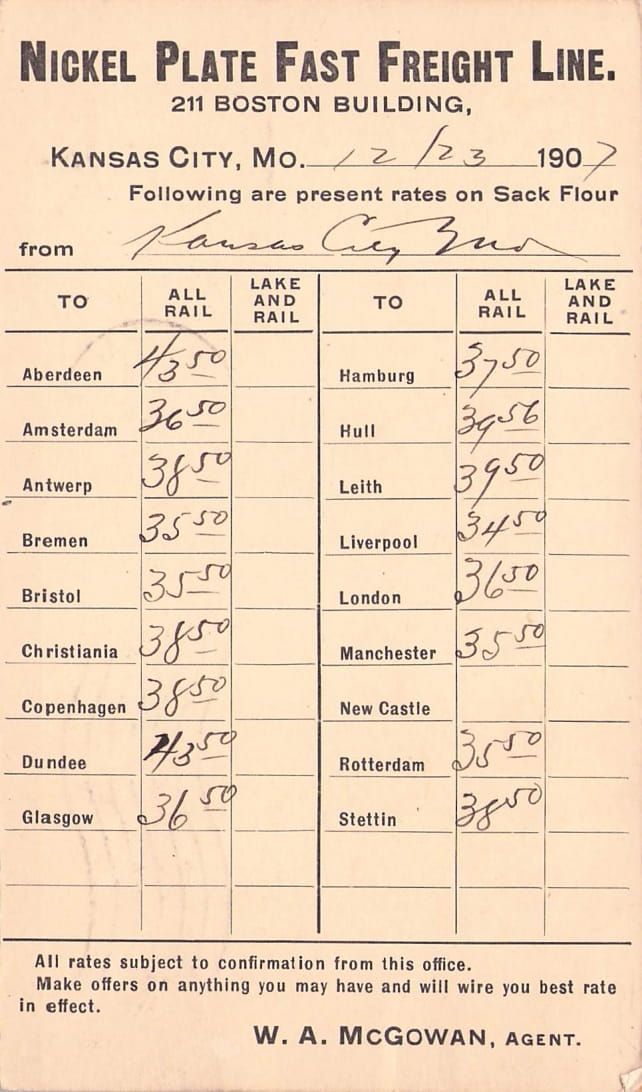 NICKEL PLATE FAST FREIGHT LINE.
211 BOSTON BUILDING,
KANSAS CITY, MO. 12/23 1907
Following are present rates on Sack Flour
from Kansas City Mo
TO ALL RAIL LAKE AND RAIL TO ALL RAIL LAKE AND RAIL
Aberdeen 43 50 Hamburg 37 50
Amsterdam 36 50 Hull 39 56
Antwerp 38 50 Leith 39 50
Bremen 35 50 Liverpool 34 50
Bristol 35 50 London 36 50
Christiania 38 50 Manchester 35 50
Copenhagen 38 50 New Castle
Dundee 43 50 Rotterdam 35 50
Glasgow 36 50 Stettin 38 50
All rates subject to confirmation from this office.
Make offers on anything you may have and will wire you best rate
in effect.
W. A. MCGOWAN, AGENT.